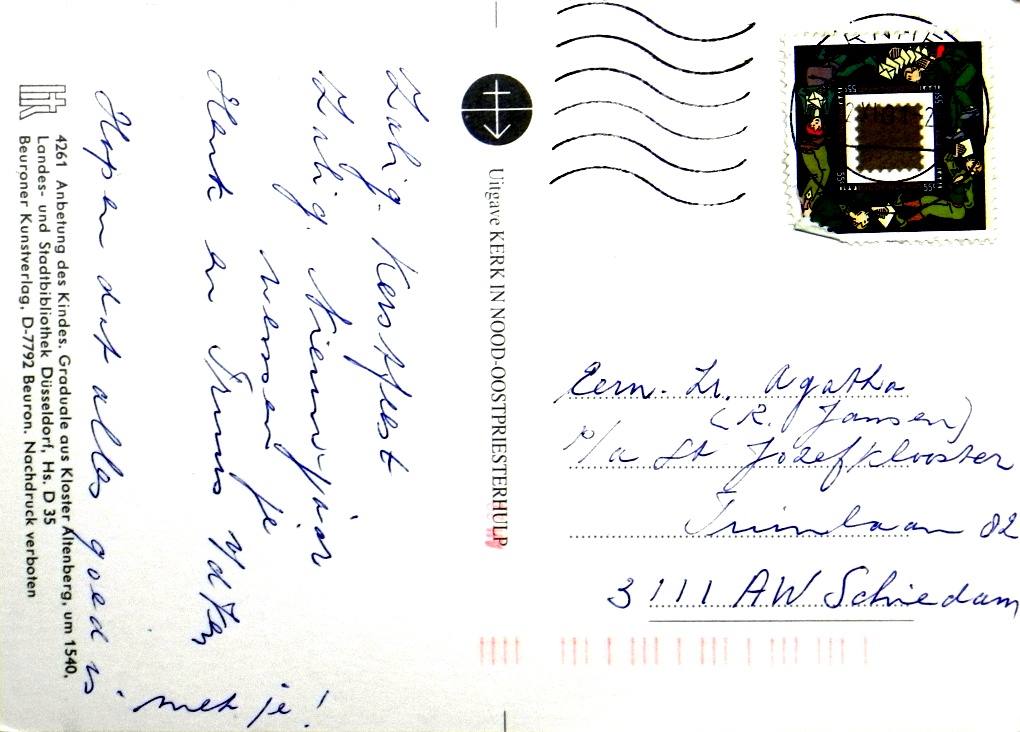 Zalig. Kerstfeest
Zalig. Nieuwjaar
wensen je
Henk en Truus v/d
Hopen dat alles goed is
met je!
4261 Anbetung des Kindes. Graduale aus Kloster Altenberg, um 1540,
Landes- und Stadtbibliothek Düsseldorf, Hs. D 35
Beuroner Kunstverlag, D-7792 Beuron. Nachdruck verboten
Uitgave KERK IN NOOD-OOSTPRIESTERHULP
55
55c
55c
55c
Eerw. Zr. Agatha
(R. Jansen)
p/a St Jozefklooster
Tuinlaan 82
3111 AW Schiedam